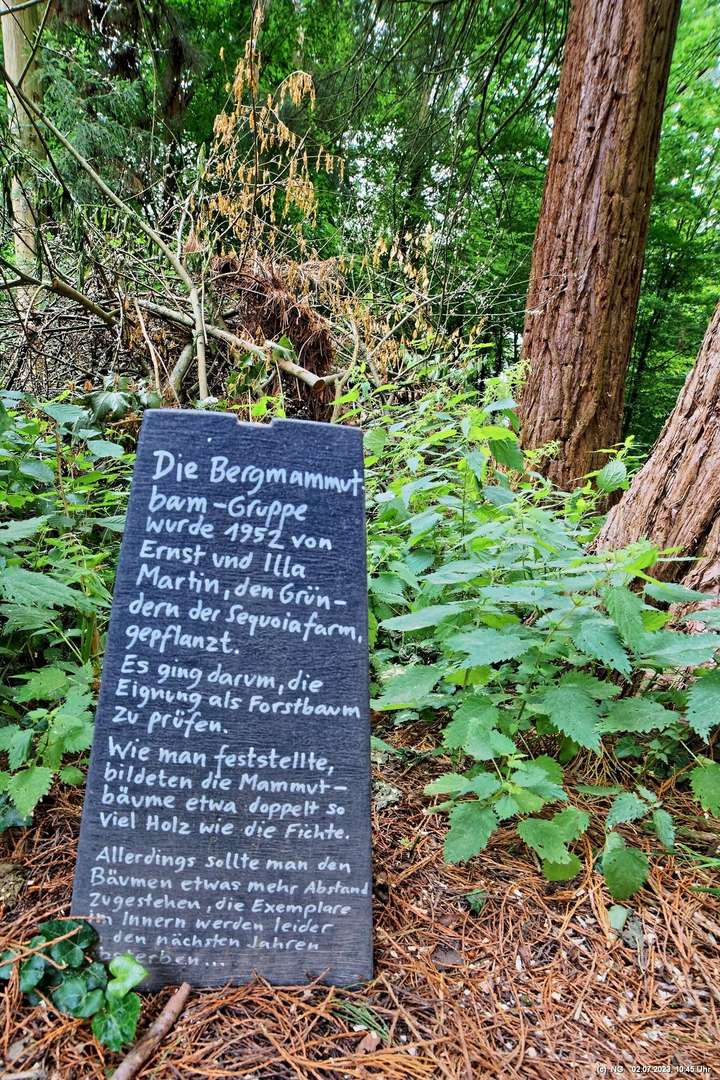 Die Bergmammut
baum-Gruppe
wurde 1952 von
Ernst und Illa
Martin, den Grün-
dern der Sequoiafarm,
gepflanzt.
Es ging darum, die
Eignung als Forstbaum
zu prüfen.
Wie man feststellte,
bildeten die Mammut-
bäume etwa doppelt so
viel Holz wie die Fichte.
Allerdings sollte man den
Bäumen etwas mehr Abstand
zugestehen, die Exemplare
im Innern werden leider
den nächsten Jahren
...
(c) NG 02.07.2023, 10:45 Uhr